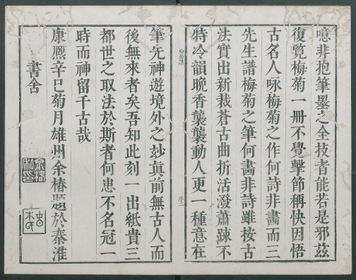 噫非抱筆墨之全技者能若是邪茲
復覧梅菊一冊不覺擊節稱快因悟
古名人咏梅菊之作何詩非畫而三
先生譜梅菊之筆何畫非詩雖按古
法實出新裁蒼古曲折活潑蕭踈不
特冷韻晚香襲襲動人更一種意在
筆先神遊境外之妙真前無古人而
後無來者矣吾知此刻一出紙貴三
都世之取法於斯者何患不名冠一
時而神留千古哉
康熈辛巳菊月雄州余椿題於秦淮
書舍